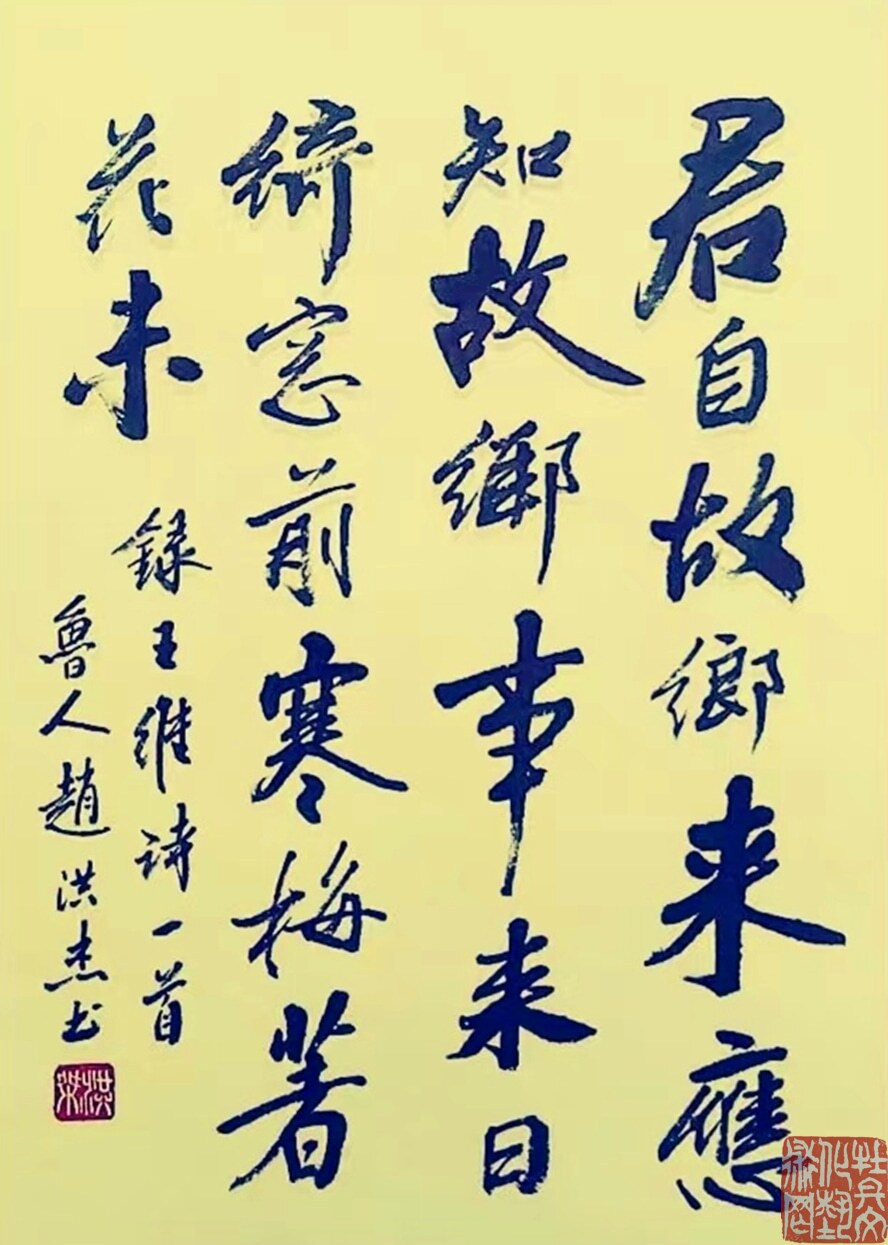 君自故鄉来應
知故鄉事来日
綺窓前寒梅著
花未
録王維诗一首
魯人趙洪杰书